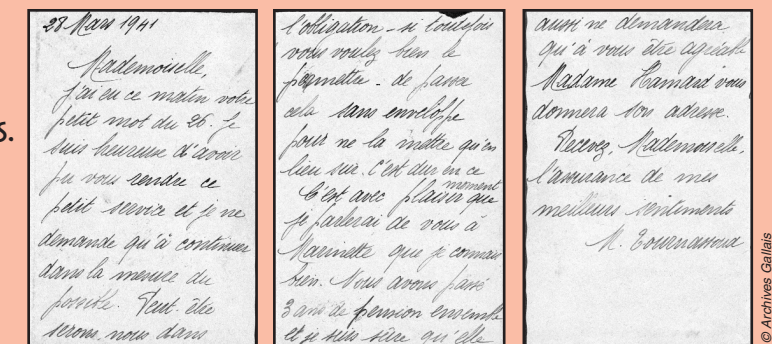 s.
28 Mars 1941
Mademoiselle,
j'ai eu ce matin votre
petit mot du 26. Je
suis heureuse d'avoir
pu vous rendre ce
petit service et je ne
demande qu'à continuer
dans la mesure du
possible. Peut-être
serons-nous dans
l'obligation - si toutefois
vous voulez bien le
permettre - de passer
cela sans enveloppe
pour ne la mettre qu'en
lieu sûr. C'est dur en ce
moment
C'est avec plaisir que
je parlerai de vous à
Marinette que je connais
bien. Nous avons passé
3 ans de pension ensemble
et je suis sûre qu'elle
aussi ne demandera
qu'à vous être agréable
Madame Hamard vous
donnera son adresse.
Recevez, Mademoiselle,
l'assurance de mes
meilleurs sentiments
M.
© Archives Gallais